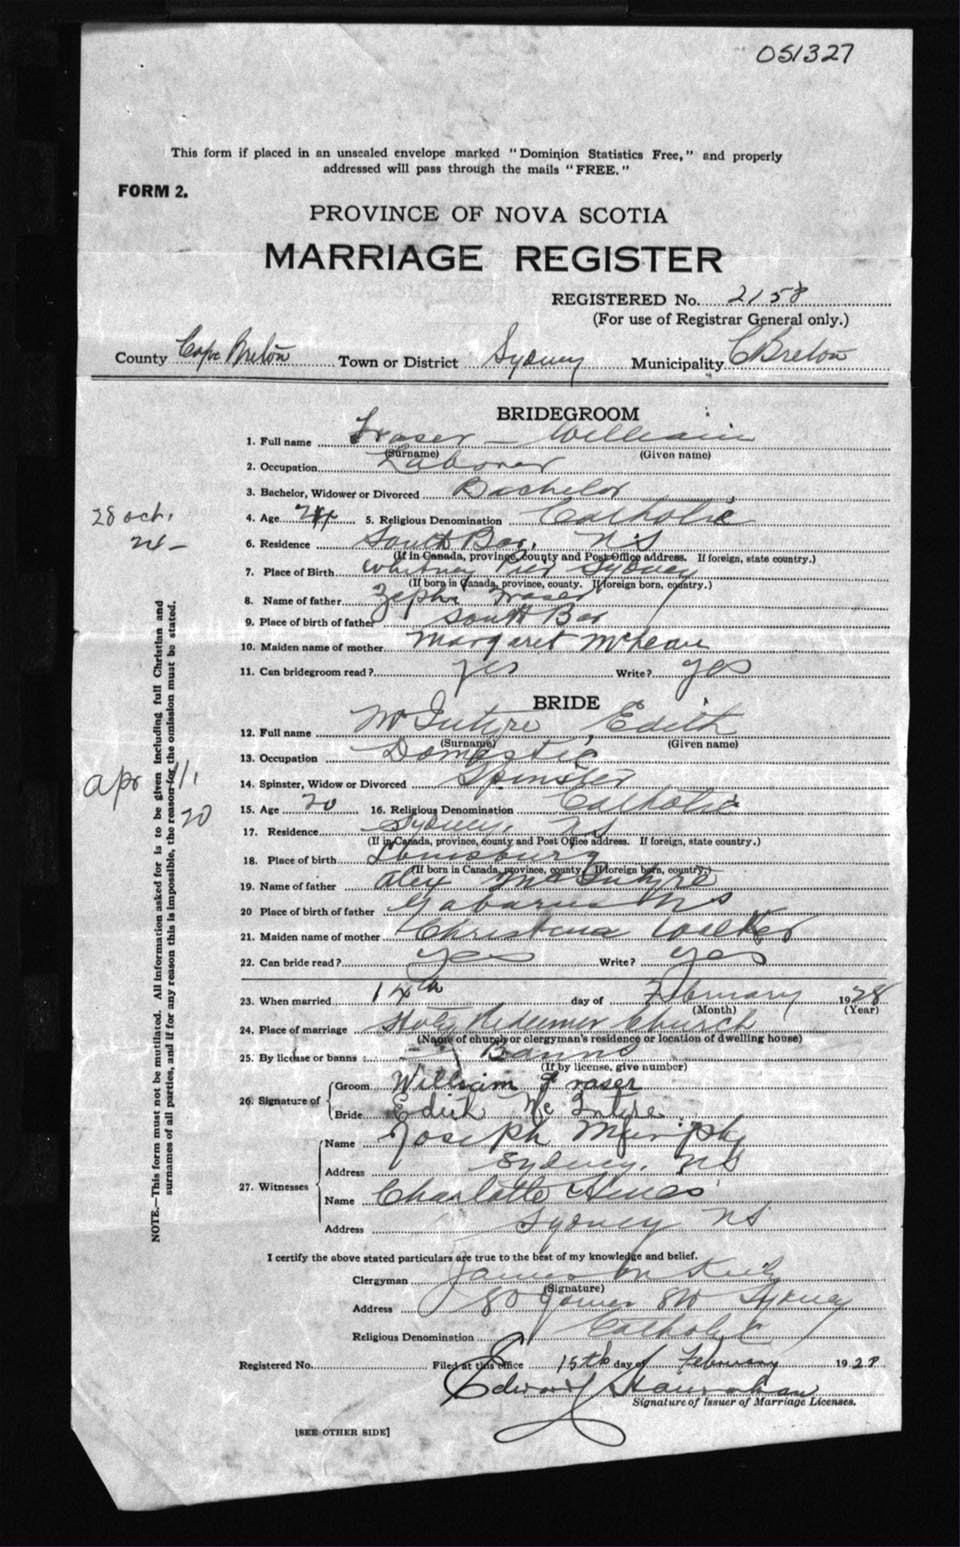 051327
This form if placed in an unsealed envelope marked "Dominion Statistics Free," and properly
addressed will pass through the mails "FREE."
FORM 2.
PROVINCE OF NOVA SCOTIA
MARRIAGE REGISTER
REGISTERED No. 2158
(For use of Registrar General only.)
County Cape Breton Town or District Sydney Municipality C Breton
BRIDEGROOM
1. Full name Fraser - William
(Surname) (Given name)
2. Occupation Laborer
3. Bachelor, Widower or Divorced Bachelor
28 oct. 4. Age 24 5. Religious Denomination Catholic
24 - 6. Residence South Bar, NS
(If in Canada, province, county and Post Office address. If foreign, state country.)
7. Place of Birth Whitney Pier Sydney
(If born in Canada, province, county. If foreign born, country.)
8. Name of father Fraser
9. Place of birth of father South Bar
10. Maiden name of mother Margaret McLean
11. Can bridegroom read? yes Write? yes
BRIDE
12. Full name McIntyre, Edith
(Surname) (Given name)
13. Occupation Domestic
14. Spinster, Widow or Divorced Spinster
apr 11, 15. Age 20 16. Religious Denomination Catholic
20 17. Residence Sydney, NS
(If in Canada, province, county and Post Office address. If foreign, state country.)
18. Place of birth Louisburg
(If born in Canada, province, county. If foreign born, country.)
19. Name of father Alex McIntyre
20 Place of birth of father Gabarus NS
21. Maiden name of mother Christena Walker
22. Can bride read? yes Write? yes
23. When married 14th day of February 1928
(Month) (Year)
24. Place of marriage Holy Redeemer Church
(Name of church or clergyman's residence or location of dwelling house)
25. By license or banns Banns
(If by license, give number)
26. Signature of Groom William Fraser
Bride Edith Mc Intyre
27. Witnesses
Name Joseph Murphy
Address Sydney, NS
Name Charlotte Hines
Address Sydney NS
I certify the above stated particulars are true to the best of my knowledge and belief.
Clergyman James M
(Signature)
Address Sydney
Religious Denomination Catholic
Registered No. Filed at this office 15th day of February 1928
Edward
Signature of Issuer of Marriage Licenses.
[SEE OTHER SIDE]
NOTE.—This form must not be mutilated. All information asked for is to be given including full Christian and
surnames of all parties, and if for any reason this is impossible, the reason for the omission must be stated.